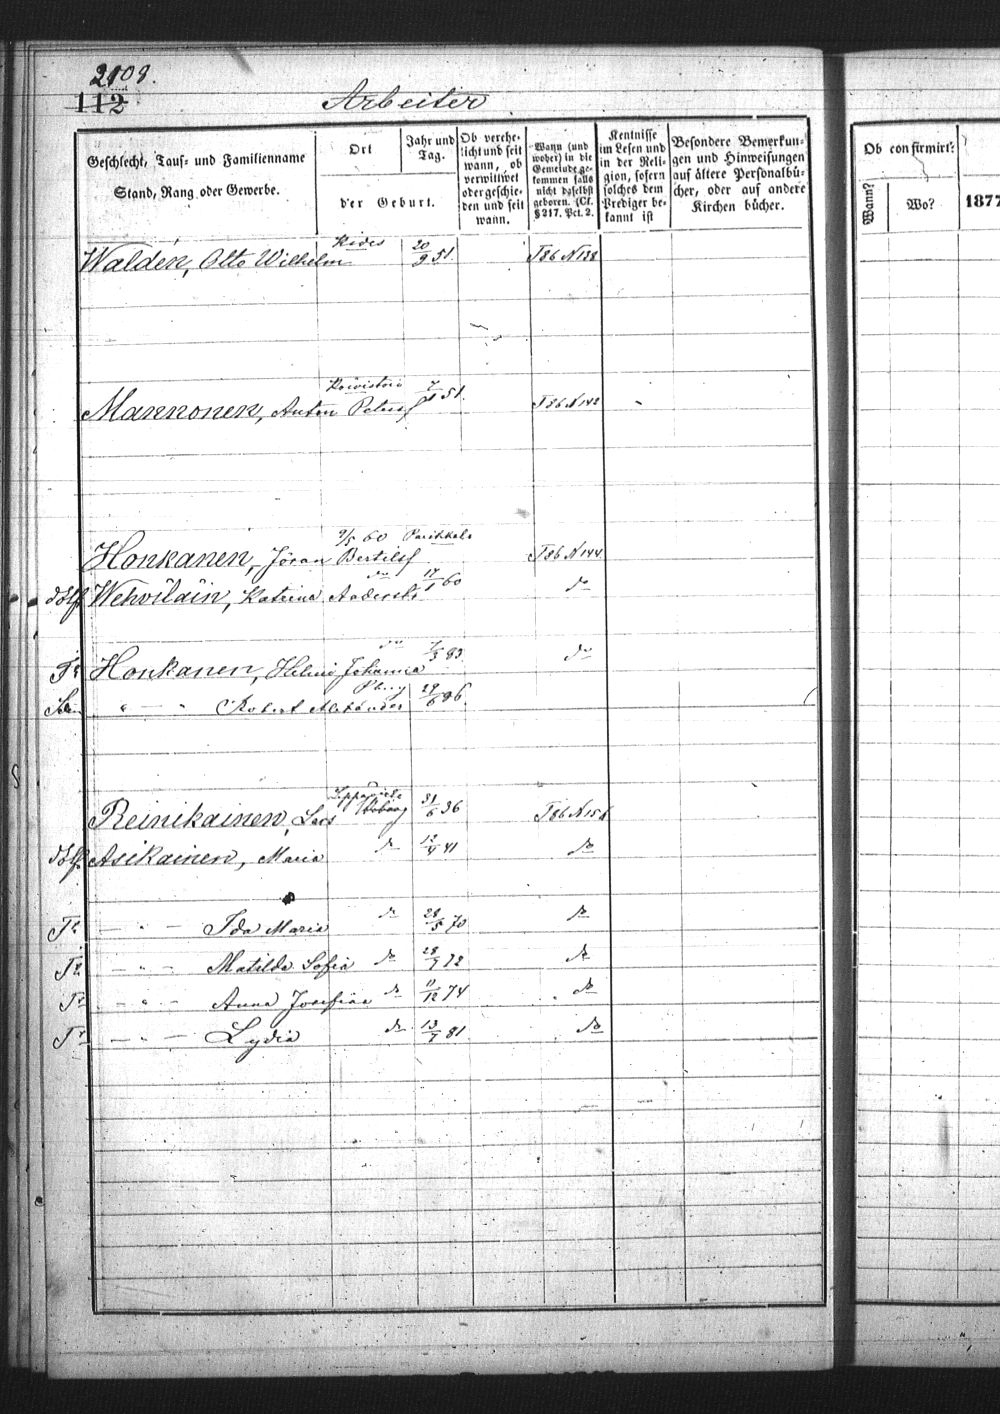 2108.
112
Arbeiter
Geschlecht, Tauf- und Familienname
Stand, Rang oder Gewerbe.
Ort
Jahr und Tag.
der Geburt.
Ob verehe-
licht und seit
wann, ob
verwittwet
oder geschie-
den und seit
wann.
Wann (und
woher) in die
Gemeinde ge-
kommen falls
nicht daselbst
geboren. (Cf.
§ 217. Pct. 2.
Kentnisse
im Lesen und
in der Reli-
gion, sofern
solches dem
Prediger be-
kannt ist
Besondere Bemerkun-
gen und Hinweisungen
auf ältere Personalbü-
cher, oder auf andere
Kirchen bücher.
Ob confirmirt?
Wann?
Wo?
1877
Waldén, Otto Wilhelm Kides 20/9 51. T 86 N 138
Mannonen, Anton Peterss Koivisto 51. T 86 N 142
Honkanen, Jöran Bertilss 9/5 60 Parikkala T 86 N 144
Wehviläin, Katrina Andersd. do 17/1 60 do
Tr Honkanen, Helmi Johanna do 83 do
" — " Robert Alexander Pburg 29/6 86
Reinikainen, Lars Wiborg 31/6 36 T 86 N 156
Asikainen, Maria do 12/4 41 do
Tr — " — Ida Maria do 28/5 70 do
Tr — " — Matilda Sofia do 28/7 72 do
Tr — " — Anna Josefina do 11/12 74 do
Tr — " — Lydia do 13/7 81. do